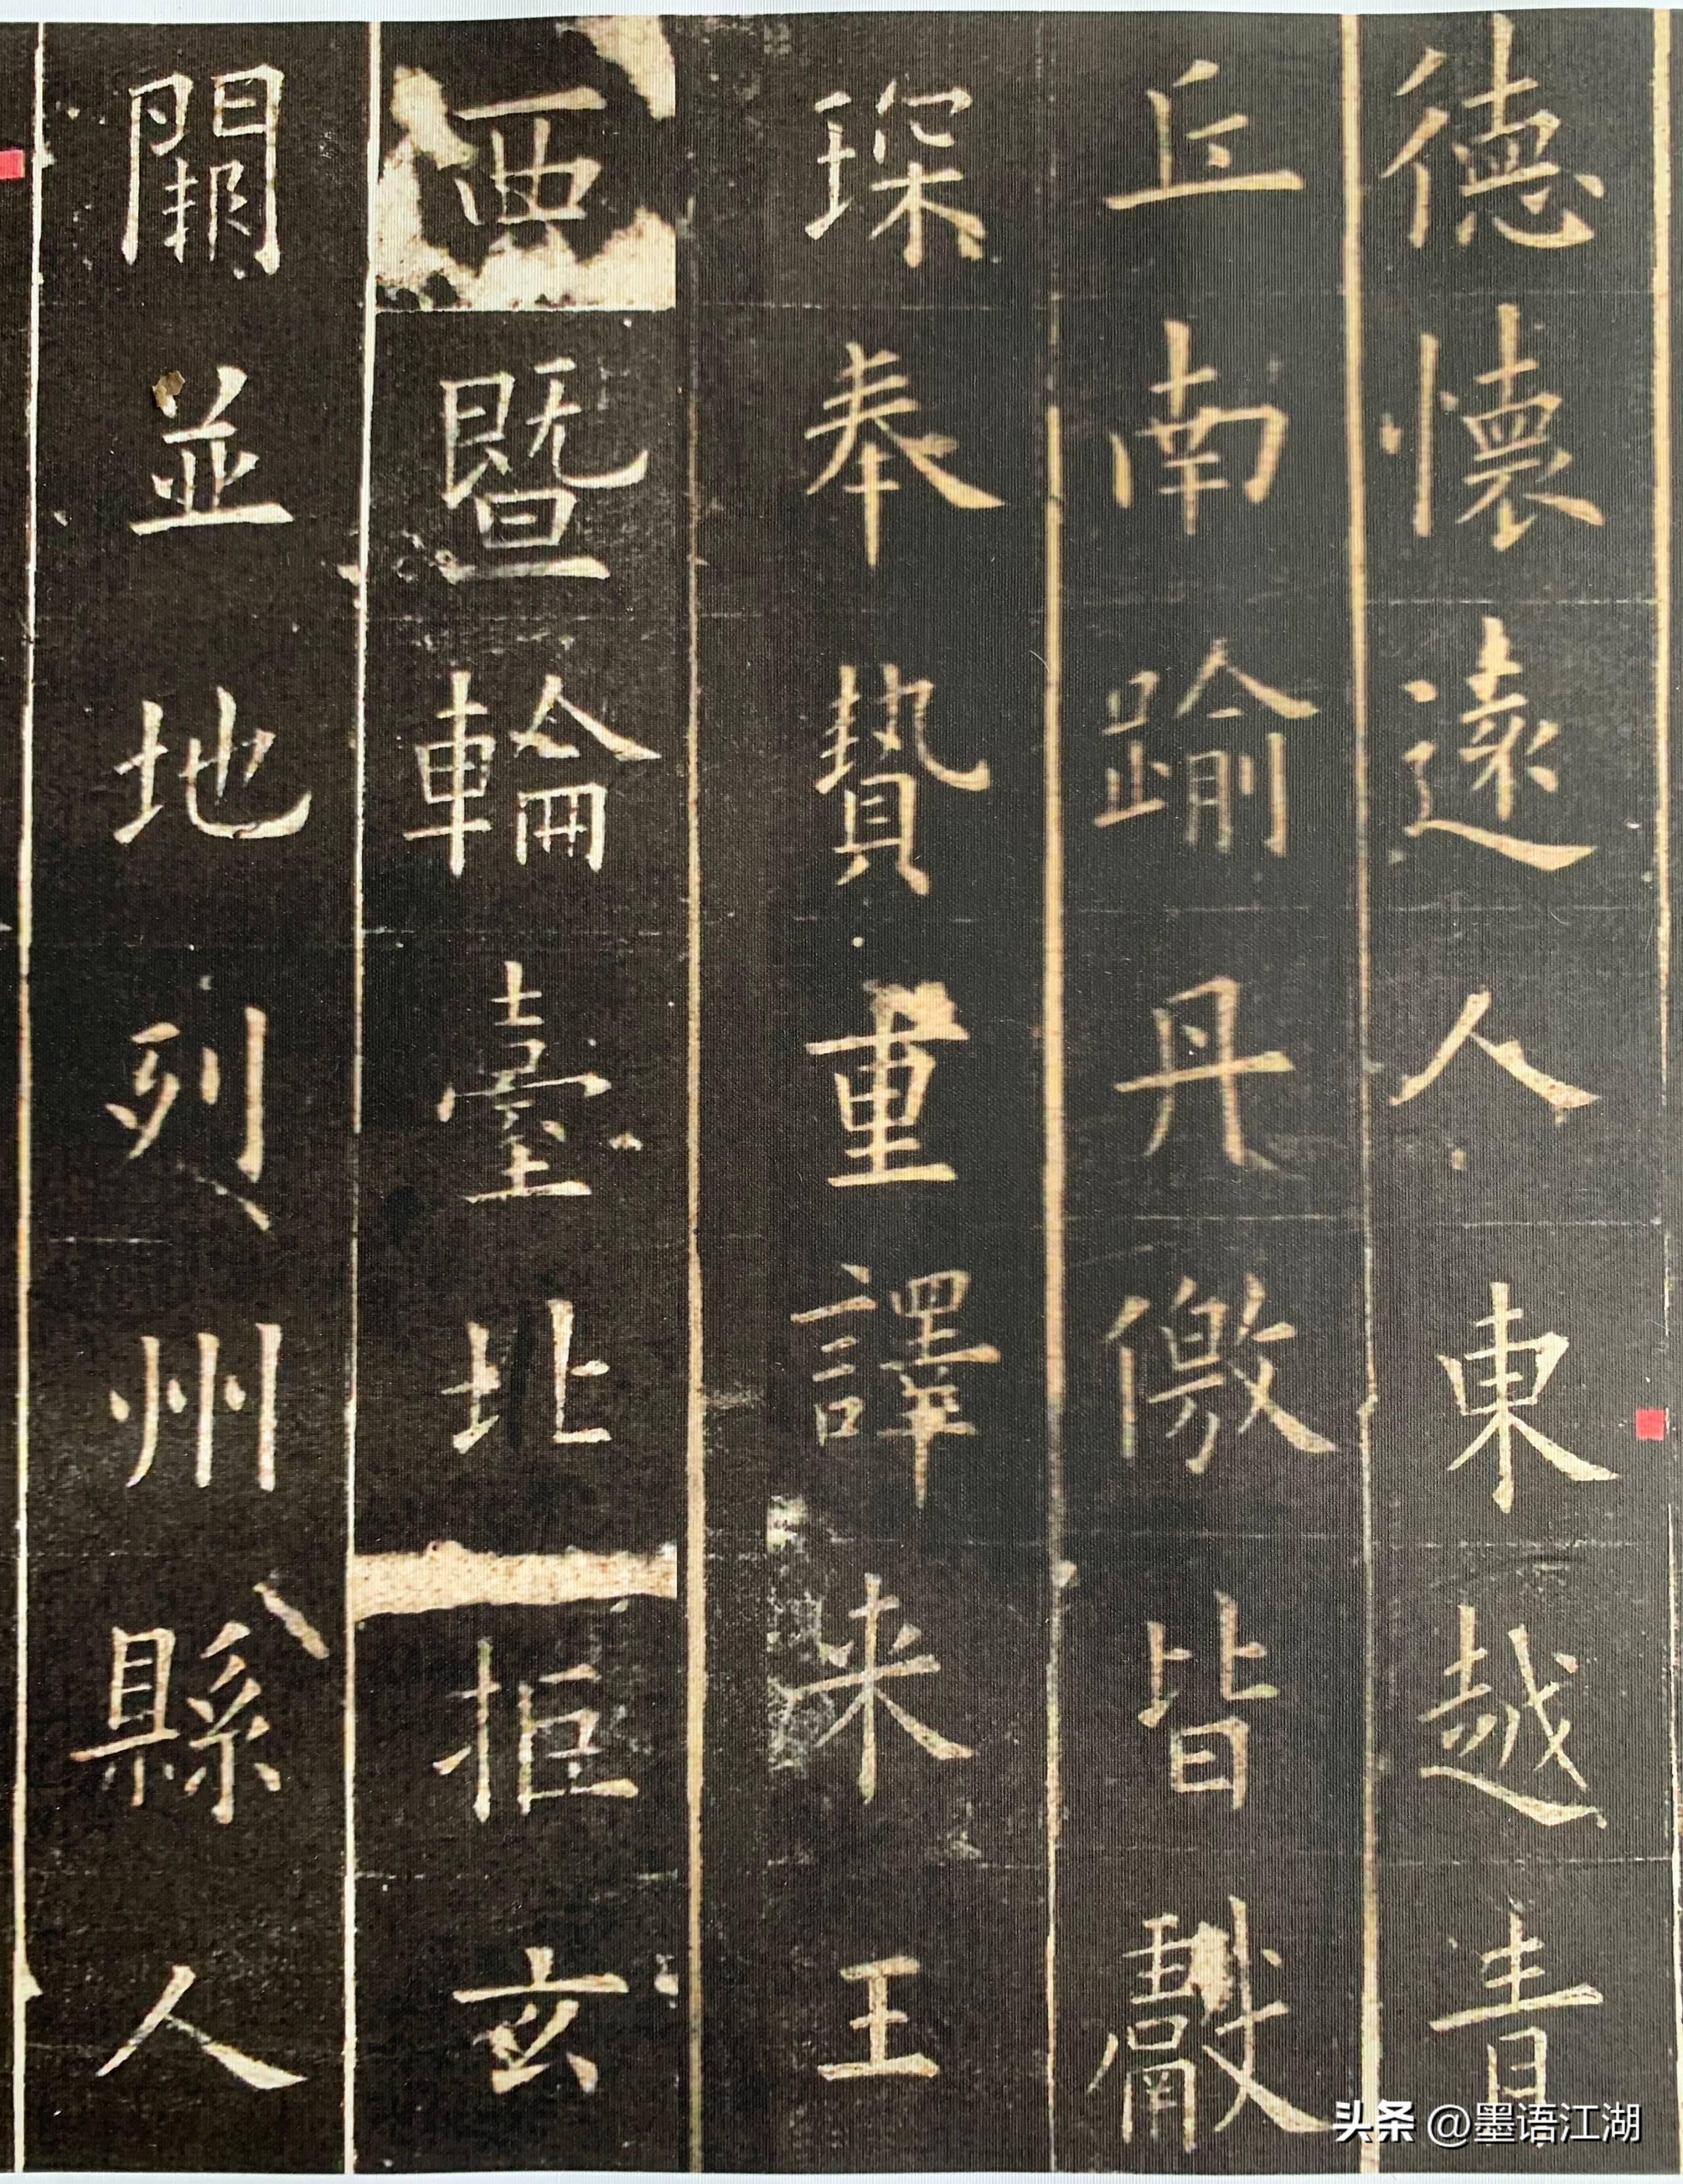 德懷遠人東越青
丘南踰丹徼皆獻
琛奉贄重譯来王
西暨輪臺北拒玄
闕並地列州縣人
头条 @墨语江湖